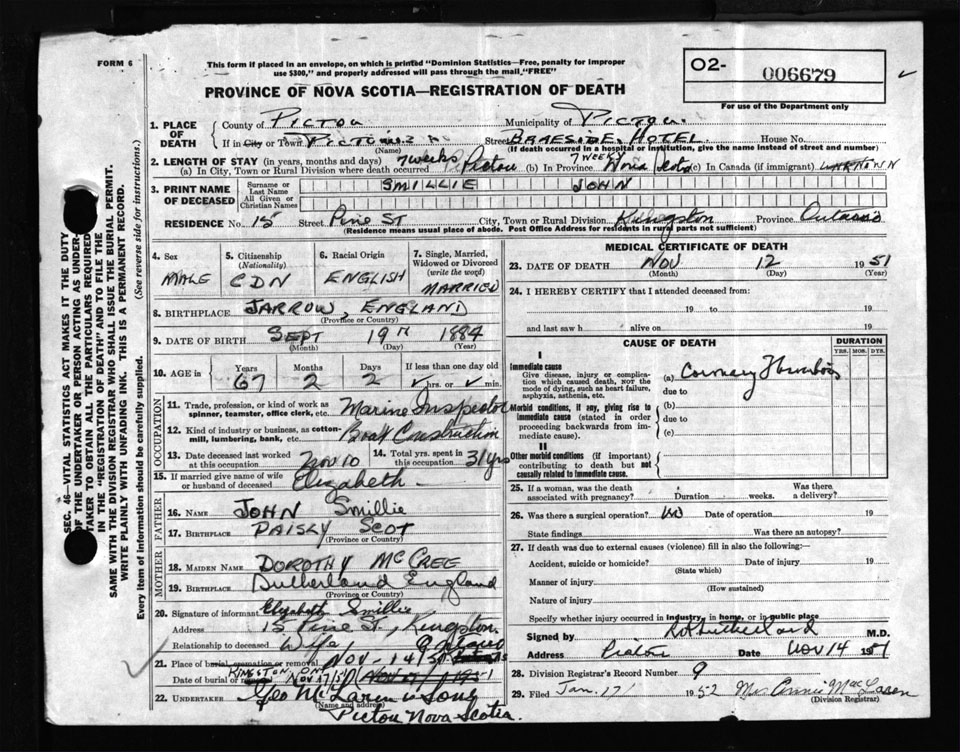 FORM 6
This form if placed in an envelope, on which is printed "Dominion Statistics—Free, penalty for improper
use $300," and properly addressed will pass through the mail, "FREE"
PROVINCE OF NOVA SCOTIA—REGISTRATION OF DEATH
O2- 006679
For use of the Department only
1. PLACE OF DEATH
County of PICTOU Municipality of PICTOU
If in City or Town PICTOU Street BRAESIDE HOTEL House No.
(Name) (If death occurred in a hospital or institution, give the name instead of street and number)
2. LENGTH OF STAY (in years, months and days)
(a) In City, Town or Rural Division where death occurred 7 weeks Pictou (b) In Province 7 WEEKS Nova Scotia (c) In Canada (if immigrant)
3. PRINT NAME OF DECEASED
Surname or Last Name SMILLIE
All Given or Christian Names JOHN
RESIDENCE No. 15 Street Pine St City, Town or Rural Division Kingston Province Ontario
(Residence means usual place of abode. Post Office Address for residents in rural parts not sufficient)
SEC. 46—VITAL STATISTICS ACT MAKES IT THE DUTY
OF THE UNDERTAKER OR PERSON ACTING AS UNDER-
TAKER TO OBTAIN ALL THE PARTICULARS REQUIRED
IN THE "REGISTRATION OF DEATH" AND TO FILE THE
SAME WITH THE DIVISION REGISTRAR WHO SHALL ISSUE THE BURIAL PERMIT.
WRITE PLAINLY WITH UNFADING INK. THIS IS A PERMANENT RECORD.
Every item of information should be carefully supplied. (See reverse side for instructions.)
4. Sex MALE
5. Citizenship (Nationality) CDN
6. Racial Origin ENGLISH
7. Single, Married, Widowed or Divorced (write the word) MARRIED
8. BIRTHPLACE JARROW, ENGLAND
(Province or Country)
9. DATE OF BIRTH SEPT 19TH 1884
(Month) (Day) (Year)
10. AGE in Years 67 Months 2 Days 2 If less than one day old hrs. or min.
OCCUPATION
11. Trade, profession, or kind of work as spinner, teamster, office clerk, etc. Marine Inspector
12. Kind of industry or business, as cotton-mill, lumbering, bank, etc. Boat Construction
13. Date deceased last worked at this occupation Nov 10
14. Total yrs. spent in this occupation 31 yrs
15. If married give name of wife or husband of deceased Elizabeth
FATHER
16. NAME JOHN Smillie
17. BIRTHPLACE PAISLY SCOT
(Province or Country)
MOTHER
18. MAIDEN NAME DOROTHY McCREE
19. BIRTHPLACE Sutherland England
(Province or Country)
20. Signature of informant Elizabeth Smillie
Address 15 Pine St, Kingston
Relationship to deceased Wife Ontario
21. Place of burial, cremation or removal NOV - 14/51
Date of burial or KINGSTON ONT NOV 17/51
22. UNDERTAKER Geo McLaren & Sons
(Name and address)
Pictou Nova Scotia.
MEDICAL CERTIFICATE OF DEATH
23. DATE OF DEATH NOV 12 1951
(Month) (Day) (Year)
24. I HEREBY CERTIFY that I attended deceased from:
19 to 19
and last saw h alive on 19
CAUSE OF DEATH DURATION
YRS. MOS. DYS.
I
Immediate cause
Give disease, injury or complica-
tion which caused death, NOT the
mode of dying, such as heart failure,
asphyxia, asthenia, etc.
(a) Coronary Thrombosis
due to
Morbid conditions, if any, giving rise to
immediate cause (stated in order
proceeding backwards from im-
mediate cause).
(b)
due to
(c)
II
Other morbid conditions (if important)
contributing to death but not
causally related to immediate cause.
25. If a woman, was the death associated with pregnancy? Duration weeks. Was there a delivery?
26. Was there a surgical operation? No Date of operation 19
State findings Was there an autopsy?
27. If death was due to external causes (violence) fill in also the following:—
Accident, suicide or homicide? Date of injury 19
(State which)
Manner of injury
(How sustained)
Nature of injury
Specify whether injury occurred in industry, in home, or in public place
Signed by Sutherland M.D.
Address Pictou Date Nov 14 1951
28. Division Registrar's Record Number 9
29. Filed Jan. 17 1952 Mrs. Annie MacLaren
(Division Registrar)